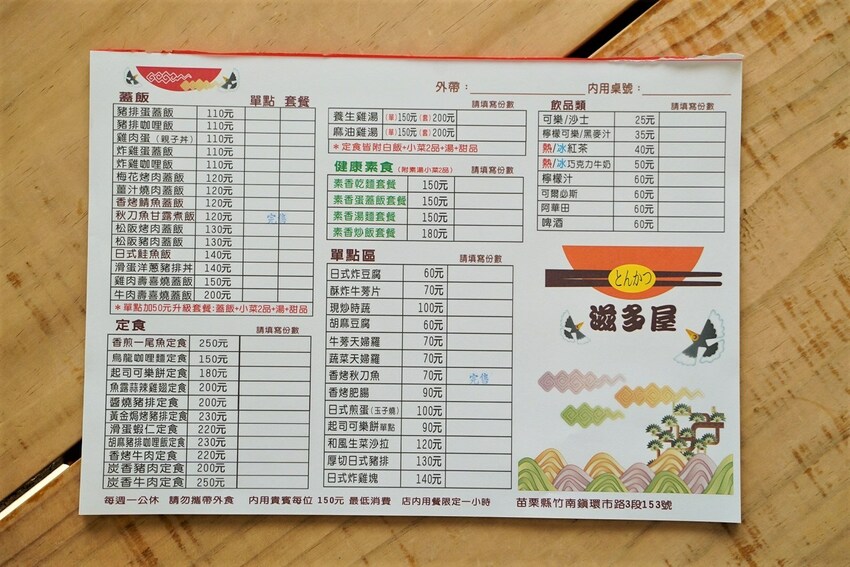 外帶：
內用桌號：
蓋飯 單點 套餐
豬排蛋蓋飯 110元
豬排咖哩飯 110元
雞肉蛋(親子丼) 110元
炸雞蛋蓋飯 110元
炸雞咖哩飯 110元
梅花烤肉蓋飯 120元
薑汁燒肉蓋飯 120元
香烤鯖魚蓋飯 120元
秋刀魚甘露煮飯 120元 完售
松阪烤肉蓋飯 130元
松阪豬肉蓋飯 140元
日式鮭魚飯 140元
滑蛋洋蔥豬排丼 140元
雞肉壽喜燒蓋飯 150元
牛肉壽喜燒蓋飯 200元
*單點加50元升級套餐：蓋飯+小菜2品+湯+甜品
定食 請填寫份數
香煎一尾魚定食 250元
烏龍咖哩麵定食 150元
起司可樂餅定食 180元
魚露蒜辣雞翅定食 200元
醬燒豬排定食 200元
黃金焗烤豬排定食 230元
滑蛋蝦仁定食 220元
胡麻豬排咖哩飯定食 230元
香烤牛肉定食 220元
炭香豬肉定食 200元
炭香牛肉定食 250元
請填寫份數
養生雞湯 (單)150元(套)200元
麻油雞湯 (單)150元(套)200元
*定食皆附白飯+小菜2品+湯+甜品
健康素食 (附素湯小菜2品) 請填寫份數
素香乾麵套餐 150元
素香蛋蓋飯套餐 150元
素香湯麵套餐 150元
素香炒飯套餐 180元
單點區 請填寫份數
日式炸豆腐 60元
酥炸牛蒡片 70元
現炒時蔬 100元
胡麻豆腐 60元
牛蒡天婦羅 70元
蔬菜天婦羅 70元
香烤秋刀魚 70元 完售
香烤肥腸 90元
日式煎蛋(玉子燒) 100元
起司可樂餅單點 90元
和風生菜沙拉 120元
厚切日式豬排 130元
日式炸雞塊 140元
飲品類 請填寫份數
可樂/沙士 25元
檸檬可樂/黑麥汁 35元
熱/冰紅茶 40元
熱/冰巧克力牛奶 50元
檸檬汁 60元
可爾必斯 60元
阿華田 60元
啤酒 60元
とんかつ
滋多屋
每週一公休 請勿攜帶外食 內用貴賓每位 150元 最低消費 店內用餐限定一小時 苗栗縣竹南鎮環市路3段153號